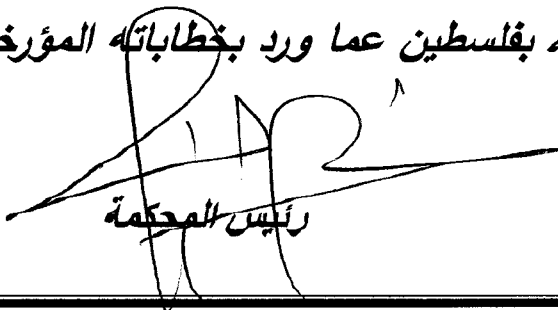 بفلسطين عما ورد بخطاباته المؤرخ
رئيس المحكمة